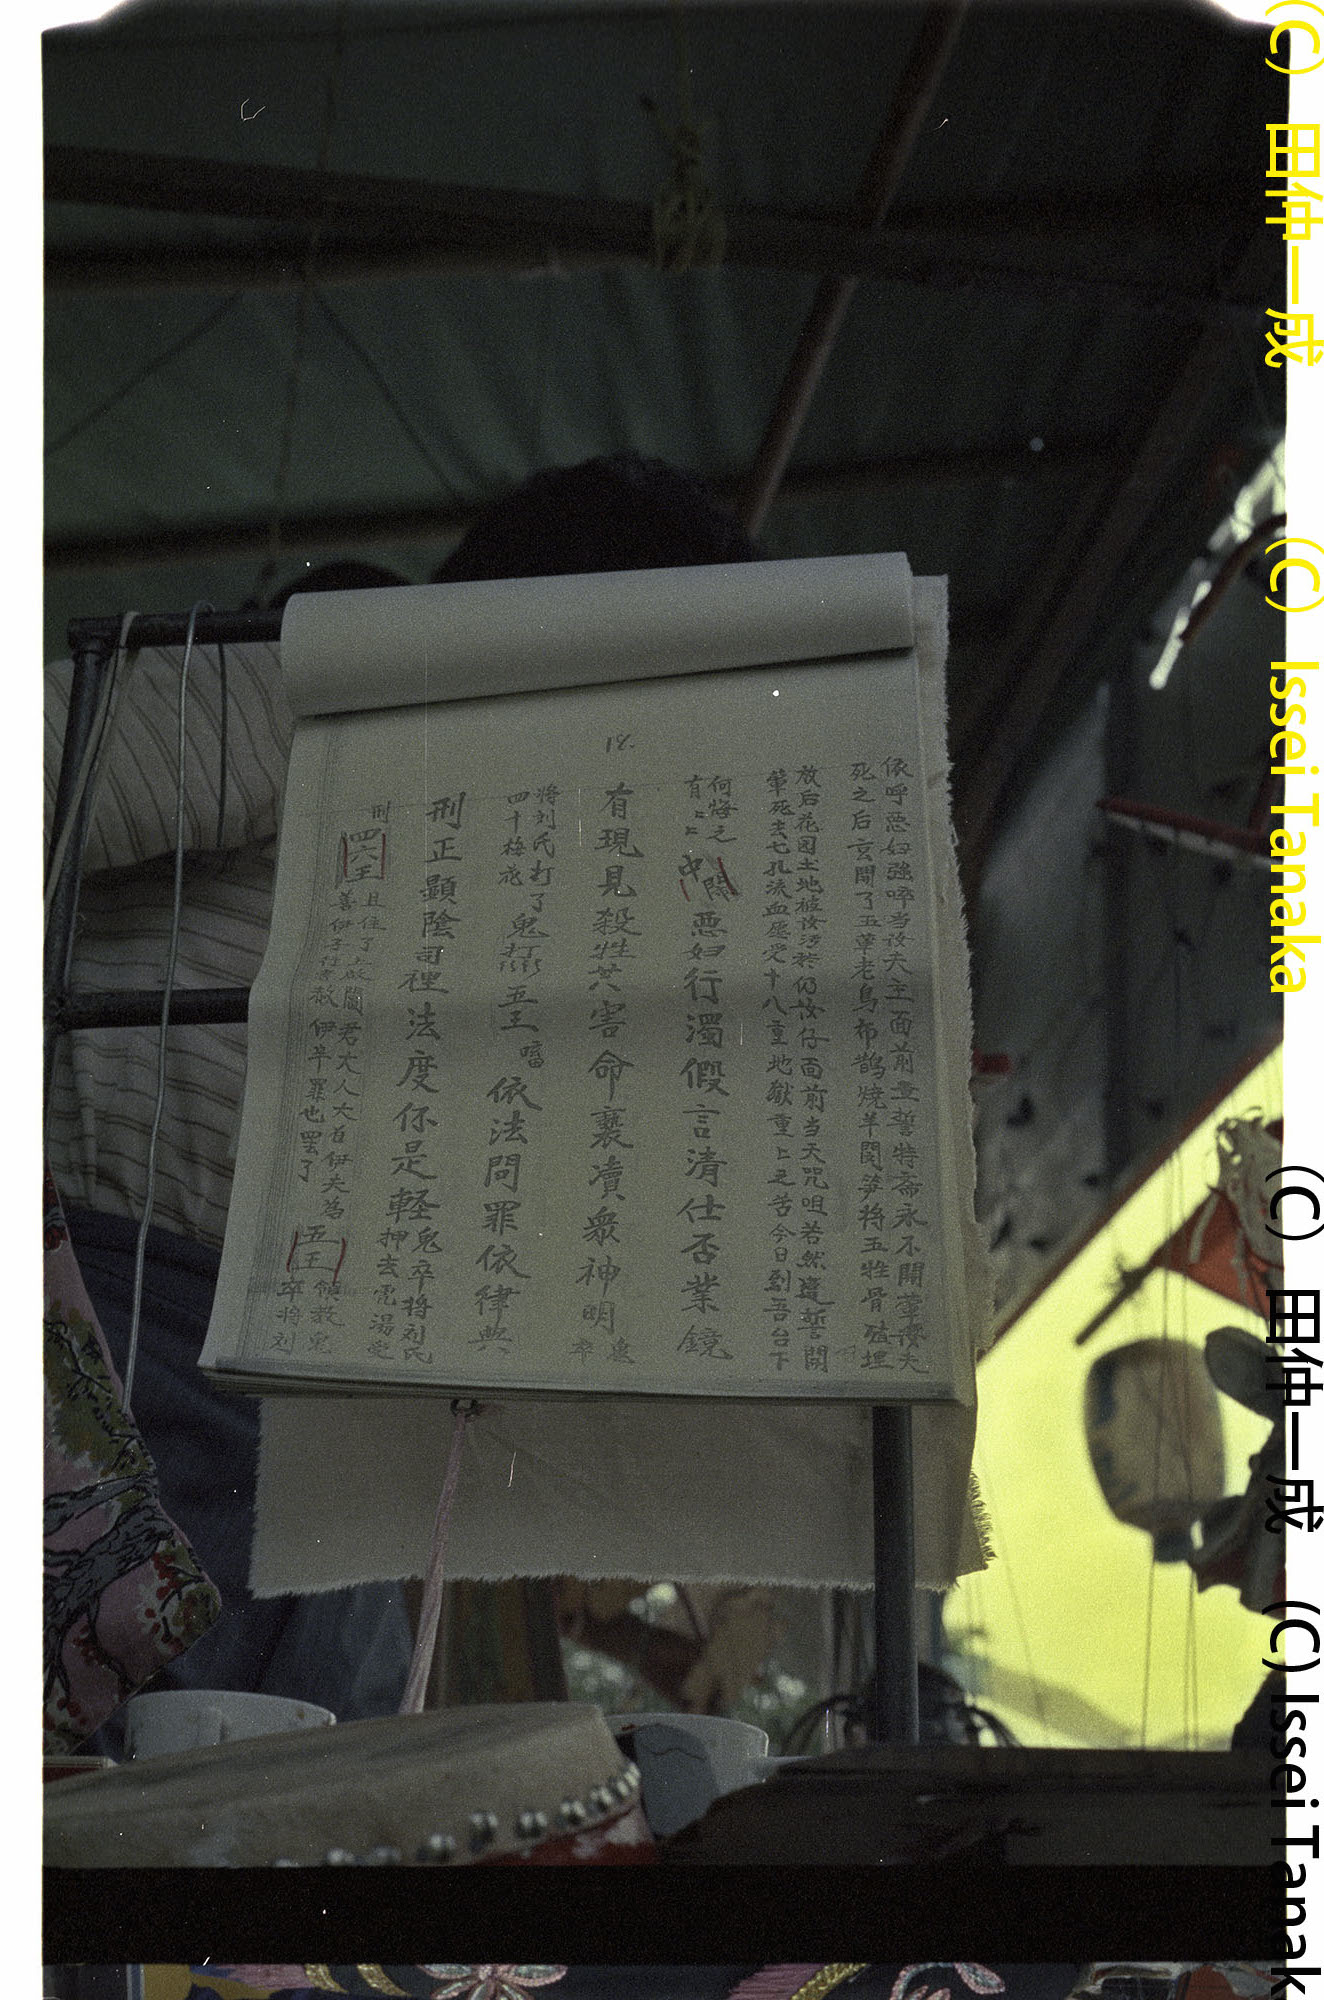 18.
依呼惡妇強啐当汝夫主面前立誓特斋永不開葷後夫
死之后玄開了五葷老鳥布鹊燒羊閹笋将五牲骨殖埋
放后花园土地被汝污秽仍汝仔面前当天咒咀若然違誓開
葷死去七孔流血愿受十八重地獄重上之苦今日到吾台下
何悔之
有上上
中閙惡妇行濁假言清仕否業鏡
有現見殺牲共害命褻凟衆神明
将刘氏打了鬼打
四十梅花
五王
嚐
依法問罪依律典
刑正顕陰司裡法度你是軽
鬼卒将刘氏
押去
湯
刑
四六王
且住了上啟閻君大人大百伊夫為
善伊子仕
赦伊卒罪也罢了
五王
領教鬼
卒将刘
(C) 田仲一成 (C) Issei Tanaka
(C) 田仲一成 (C) Issei Tanak